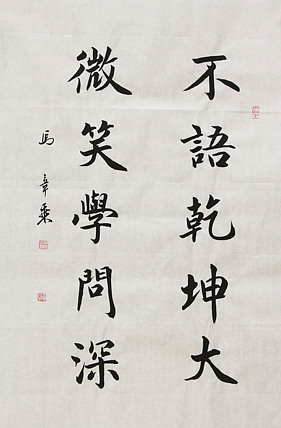 不語乾坤大
微笑學問深
馬章乘